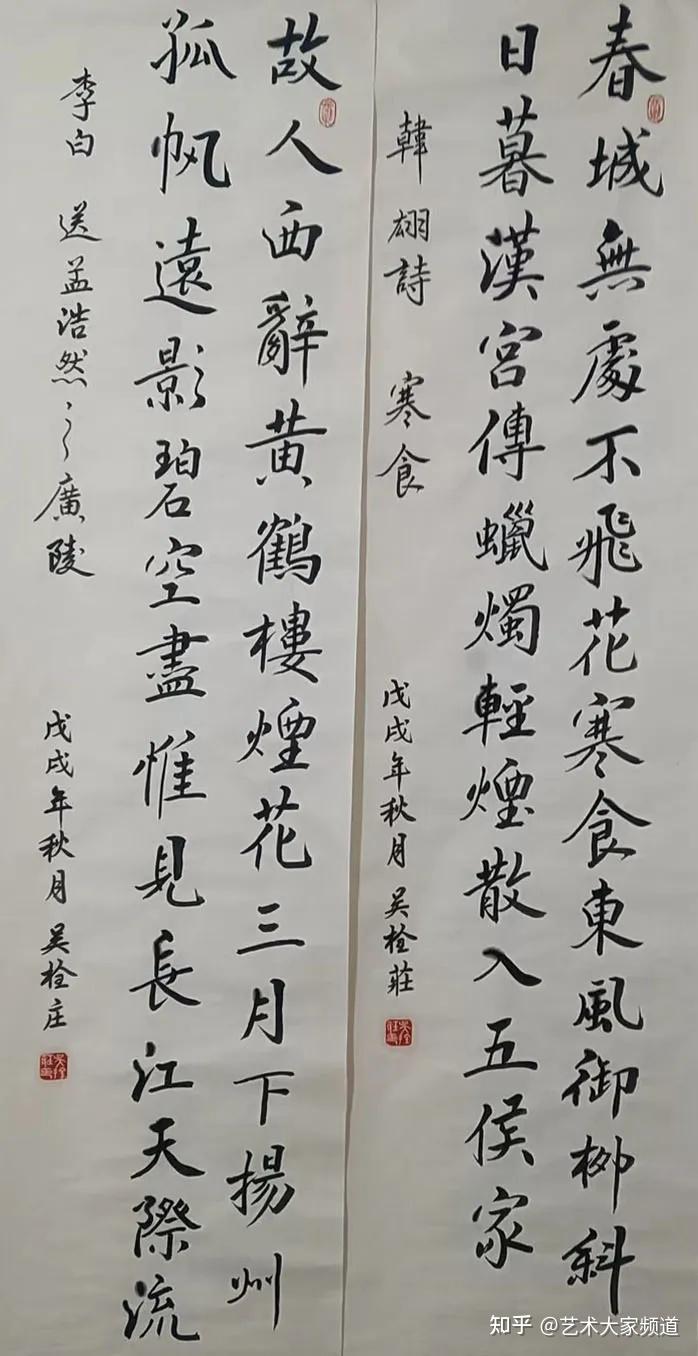 春城無處不飛花寒食東風御柳斜
日暮漢宮傳蠟燭輕煙散入五侯家
韓翃詩 寒食 戊戌年秋月 吴栓莊
故人西辭黄鶴樓煙花三月下揚州
孤帆遠影碧空盡惟見長江天際流
李白 送孟浩然之廣陵 戊戌年秋月 吴栓庄
知乎 @艺术大家频道